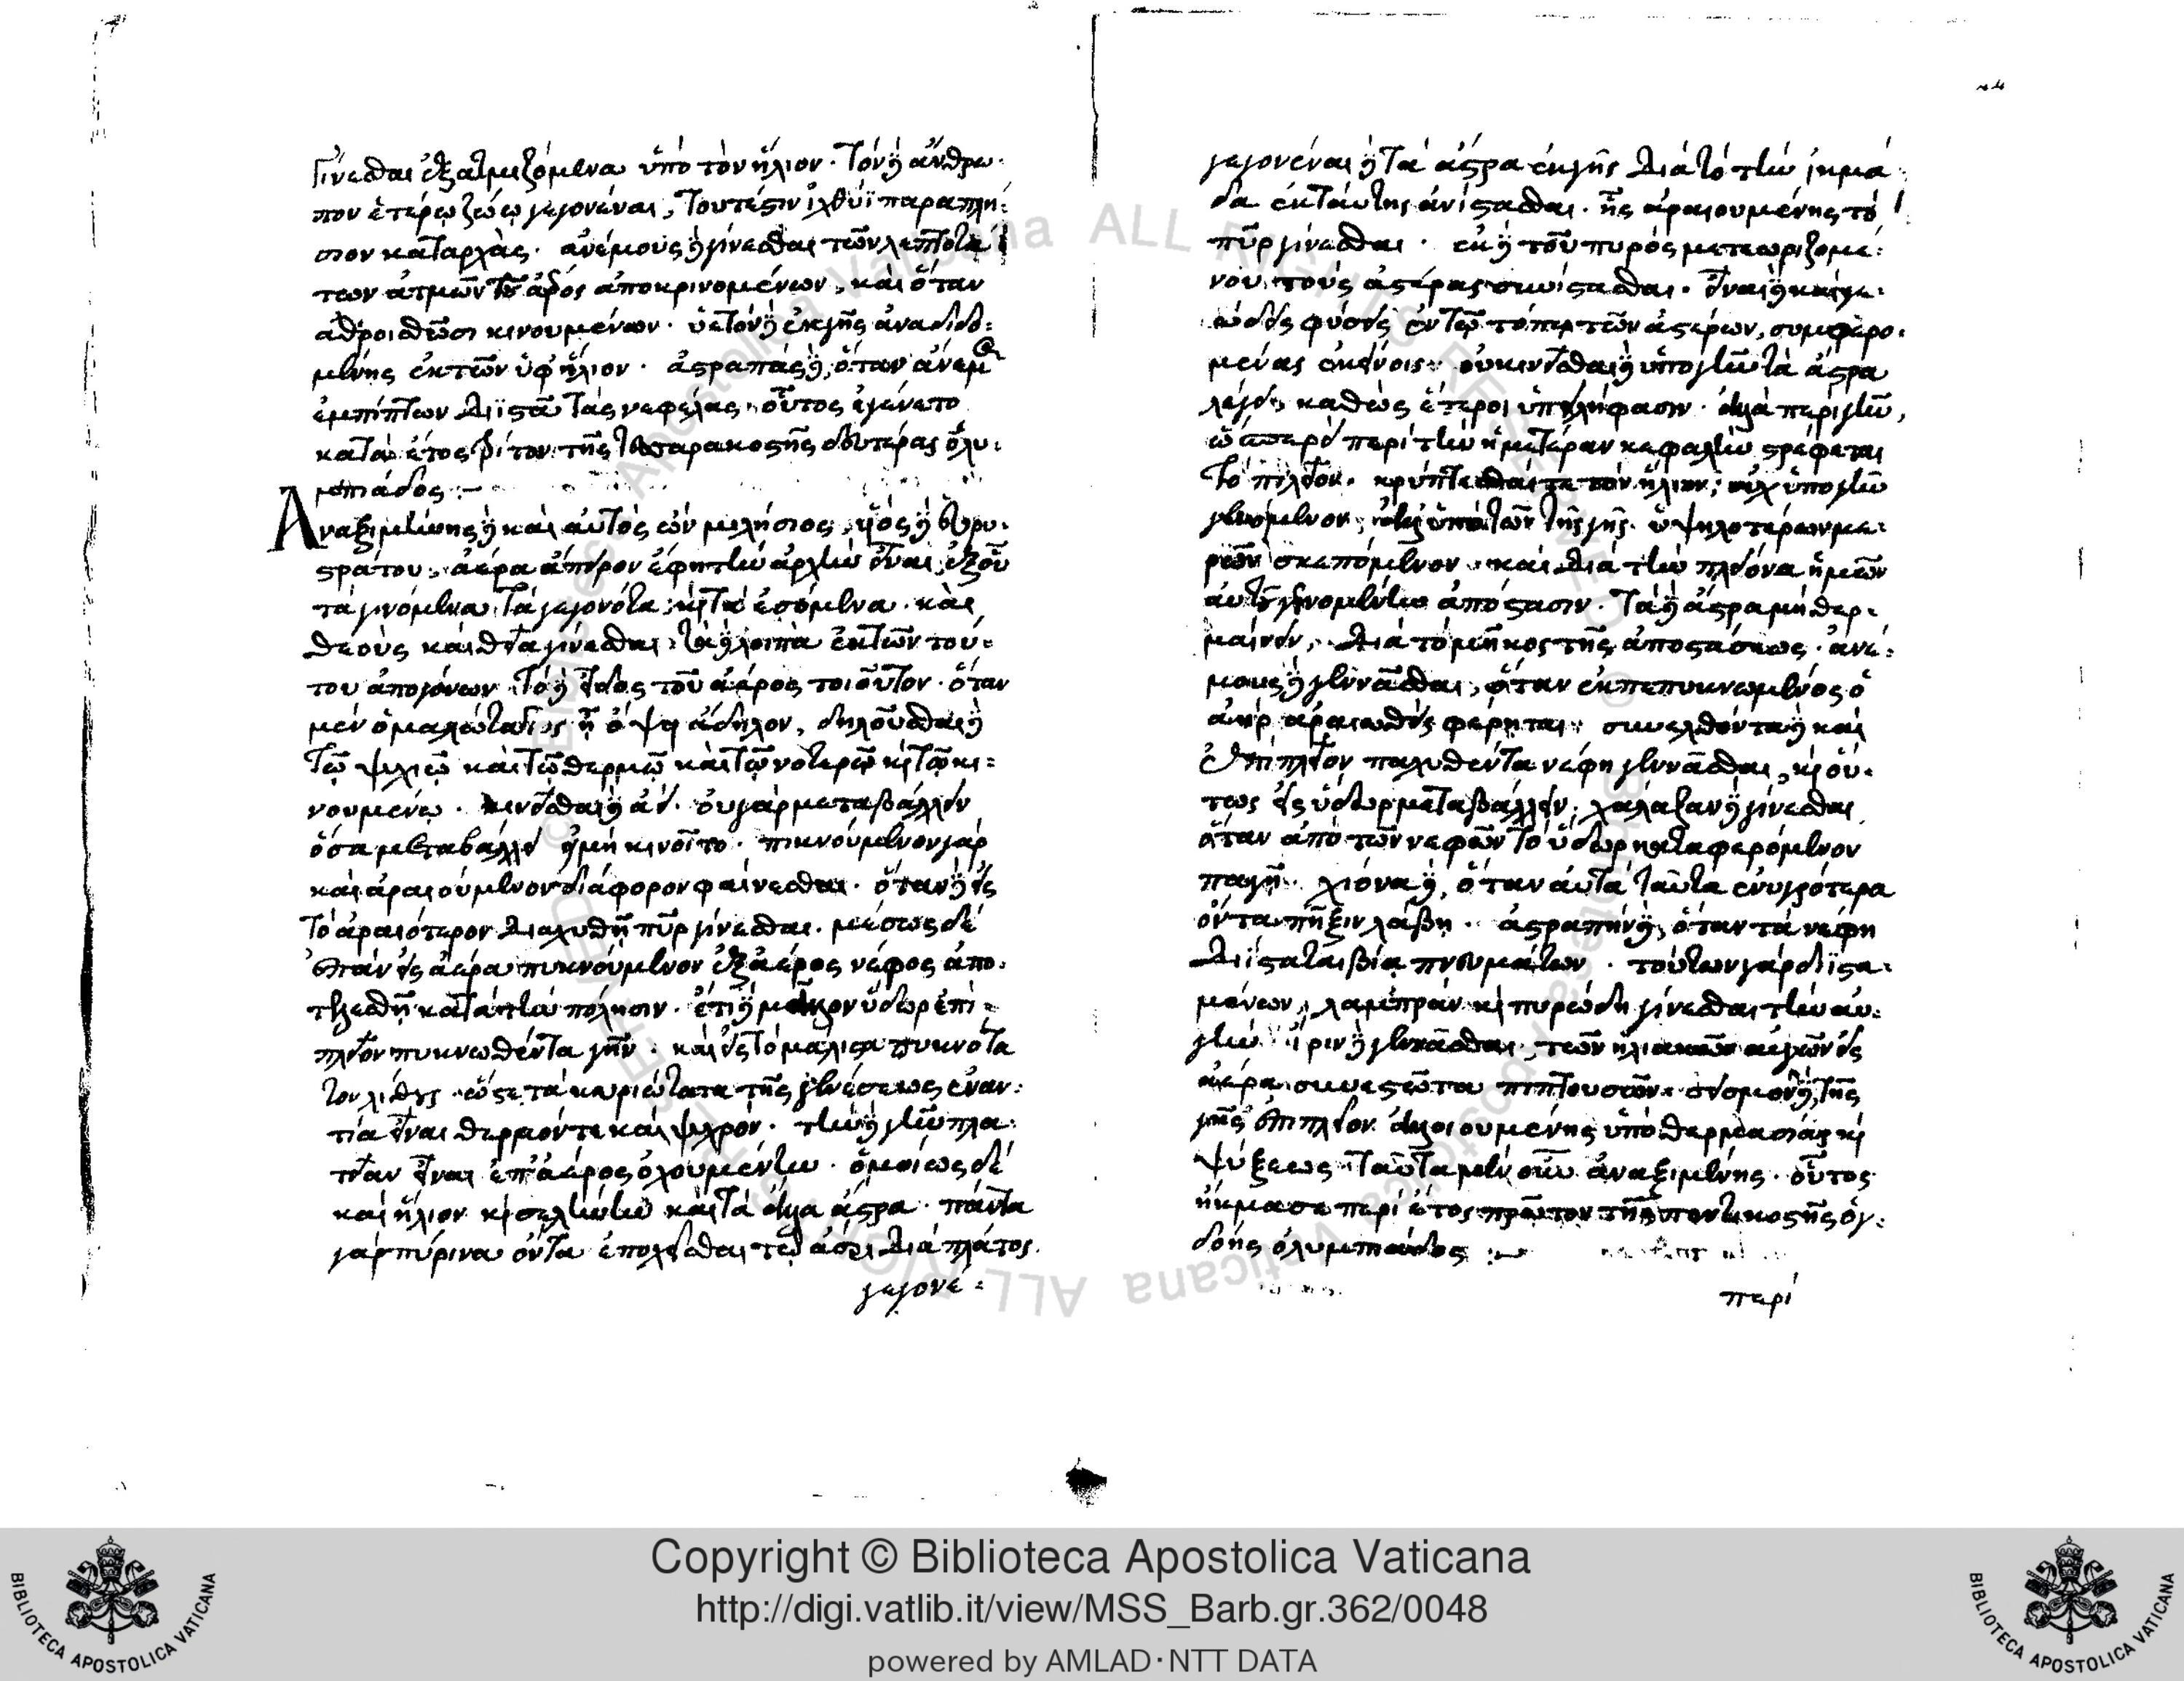 Γίνεσθαι ἐξατμιζόμενα ὑπὸ τὸν ἥλιον· τὸν δὲ ἄνθρω-
πον ἑτέρῳ ζώῳ γεγονέναι, τουτέστιν ἰχθύϊ παραπλή-
σιον καταρχὰς· ἀνέμους δὲ γίνεσθαι τῶν λεπτοτά
των ἀτμῶν τοῦ ἀέρος ἀποκρινομένων, καὶ ὅταν
ἀθροισθῶσι κινουμένων· ὑετὸν δὲ ἐκ γῆς ἀναδιδο-
μένης ἐκ τῶν ὑφ' ἥλιον· ἀστραπὰς δὲ, ὅταν ἄνεμος
ἐμπίπτων διϊστᾶ τὰς νεφέλας· οὗτος ἐγένετο
κατὰ ἔτος τρίτον τῆς τεσσαρακοστῆς δευτέρας ὀλυ-
μπιάδος :-
Ἀναξιμένης δὲ καὶ αὐτὸς ὢν μιλήσιος, υἱὸς δὲ εὐρυ-
στράτου, ἀέρα ἄπειρον ἔφη τὴν ἀρχὴν εἶναι, ἐξ οὗ
τὰ γινόμενα, τὰ γεγονότα, καὶ τὰ ἐσόμενα, καὶ
θεοὺς καὶ θεῖα γίνεσθαι, τὰ δὲ λοιπὰ ἐκ τῶν τού-
του ἀπογόνων· τὸ δὲ εἶδος τοῦ ἀέρος τοιοῦτον· ὅταν
μὲν ὁμαλώτατος ᾖ ὄψει ἄδηλον, δηλοῦσθαι δὲ
τῷ ψυχρῷ καὶ τῷ θερμῷ καὶ τῷ νοτερῷ καὶ τῷ κι-
νουμένῳ· κινεῖσθαι δὲ ἀεί· οὐ γὰρ μεταβάλλειν
ὅσα μεταβάλλει εἰ μὴ κινοῖτο· πυκνούμενον γὰρ
καὶ ἀραιούμενον διάφορον φαίνεσθαι· ὅταν δὲ εἰς
τὸ ἀραιότερον διαχυθῇ πῦρ γίνεσθαι· μέσως δὲ
ἐπὰν εἰς ἀέρα πυκνούμενον ἐξ ἀέρος νέφος ἀπο-
τελεσθῇ κατὰ τὴν πόλησιν· ἔτι δὲ μᾶλλον ὕδωρ ἐπὶ
πλεῖον πυκνωθέντα γῆν· καὶ εἰς τὸ μάλιστα πυκνότα
τον λίθους· ὥστε τὰ κυριώτατα τῆς γενέσεως ἐναν-
τία εἶναι θερμόν τε καὶ ψυχρόν· τὴν δὲ γῆν πλα-
τεῖαν εἶναι ἐπ' ἀέρος ὀχουμένην· ὁμοίως δὲ
καὶ ἥλιον καὶ σελήνην καὶ τὰ ἄλλα ἄστρα· πάντα
γὰρ πύρινα ὄντα ἐποχεῖσθαι τῷ ἀέρι διὰ πλάτος.
γεγονέ-
γεγονέναι δὲ τὰ ἄστρα ἐκ γῆς διὰ τὸ τὴν ἰκμά-
δα ἐκ ταύτης ἀνίστασθαι· ἧς ἀραιουμένης τὸ
πῦρ γίνεσθαι· ἐκ δὲ τοῦ πυρὸς μετεωριζομέ-
νου τοὺς ἀστέρας συνίστασθαι· εἶναι δὲ καὶ γε-
ώδεις φύσεις ἐν τῷ τόπῳ τῶν ἀστέρων, συμφερο-
μένας ἐκείνοις· οὐ κινεῖσθαι δὲ ὑπὸ γῆν τὰ ἄστρα
λέγει, καθὼς ἕτεροι ὑπειλήφασιν· ἀλλὰ περὶ γῆν,
ὡσπερεὶ περὶ τὴν ἡμετέραν κεφαλὴν στρέφεται
τὸ πιλεῖον· κρύπτεσθαί τε τὸν ἥλιον, οὐχ ὑπὸ γῆν
γενόμενον, ἀλλ' ὑπὸ τῶν τῆς γῆς ὑψηλοτέρων με-
ρῶν σκεπόμενον, καὶ διὰ τὴν πλείονα ἡμῶν
αὐτοῦ γινομένην ἀπόστασιν· τὰ δὲ ἄστρα μὴ θερ-
μαίνειν, διὰ τὸ μῆκος τῆς ἀποστάσεως· ἀνέ-
μους δὲ γεννᾶσθαι, ὅταν ἐκπεπυκνωμένος ὁ
ἀὴρ ἀραιωθεὶς φέρηται· συνελθόντα δὲ καὶ
ἐπὶ πλεῖον παχυθέντα νέφη γεννᾶσθαι, καὶ οὕ-
τως εἰς ὕδωρ μεταβάλλειν, χάλαζαν δὲ γίνεσθαι
ὅταν ἀπὸ τῶν νεφῶν τὸ ὕδωρ καταφερόμενον
παγῇ· χιόνα δὲ, ὅταν αὐτὰ ταῦτα ἐνυγρότερα
ὄντα πῆξιν λάβῃ· ἀστραπὴν δὲ, ὅταν τὰ νέφη
διΐσταται βίᾳ πνευμάτων· τούτων γὰρ διϊστα-
μένων, λαμπρὰν καὶ πυρώδη γίνεσθαι τὴν αὐ-
γήν· ἶριν δὲ γεννᾶσθαι, τῶν ἡλιακῶν αὐγῶν εἰς
ἀέρα συνεστῶτα πιπτουσῶν· σεισμὸν δὲ, τῆς
γῆς ἐπὶ πλεῖον ἀλλοιουμένης ὑπὸ θερμασίας καὶ
ψύξεως· ταῦτα μὲν οὖν ἀναξιμένης· οὗτος
ἤκμασε περὶ ἔτος πρῶτον τῆς πεντηκοστῆς ὀγ-
δόης ὀλυμπιάδος :-
περὶ
Copyright © Biblioteca Apostolica Vaticana
http://digi.vatlib.it/view/MSS_Barb.gr.362/0048
powered by AMLAD·NTT DATA
BIBLIOTECA APOSTOLICA VATICANA
BIBLIOTECA APOSTOLICA VATICANA